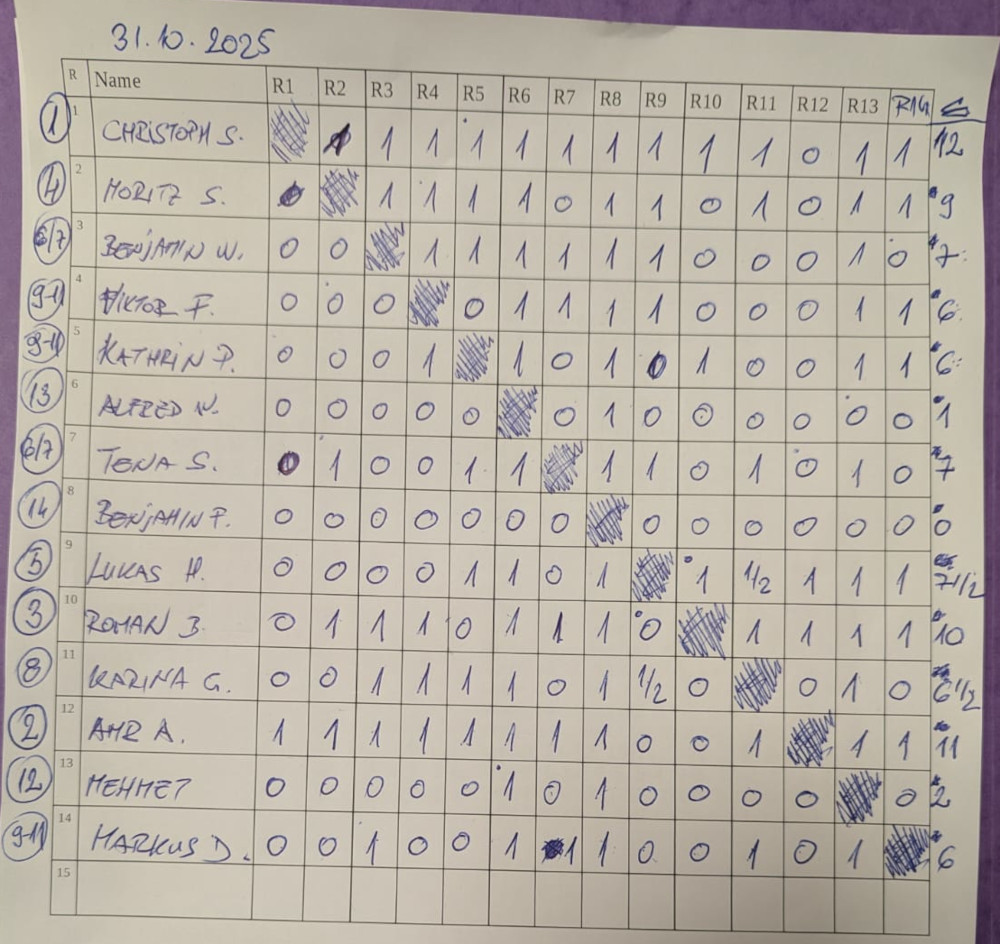 31.10.2025
R Name R1 R2 R3 R4 R5 R6 R7 R8 R9 R10 R11 R12 R13 R14 G
1 1 CHRISTOPH S. 1 1 1 1 1 1 1 1 1 1 0 1 1 12
4 2 MORITZ S. 0 1 1 1 1 0 1 1 0 1 0 1 1 9
6/7 3 BENJAMIN W. 0 0 1 1 1 1 1 1 0 0 0 1 0 7
9-11 4 VIKTOR F. 0 0 0 0 1 1 1 1 0 0 0 1 1 6
9-11 5 KATHRIN P. 0 0 0 1 1 0 1 0 1 0 0 1 1 6
13 6 ALFRED N. 0 0 0 0 0 0 1 0 0 0 0 0 0 1
6/7 7 TENA S. 0 1 0 0 1 1 1 1 0 1 0 1 0 7
14 8 BENJAMIN F. 0 0 0 0 0 0 0 0 0 0 0 0 0 0
5 9 LUKAS H. 0 0 0 0 1 1 0 1 1 1/2 1 1 1 7 1/2
3 10 ROMAN B. 0 1 1 1 0 1 1 1 0 1 1 1 1 10
8 11 KARINA G. 0 0 1 1 1 1 0 1 1/2 0 0 1 0 6 1/2
2 12 AMR A. 1 1 1 1 1 1 1 1 0 0 1 1 1 11
12 13 MEHMET 0 0 0 0 0 1 0 1 0 0 0 0 0 2
9-11 14 MARKUS D. 0 0 1 0 0 1 1 1 0 0 1 0 1 6
15